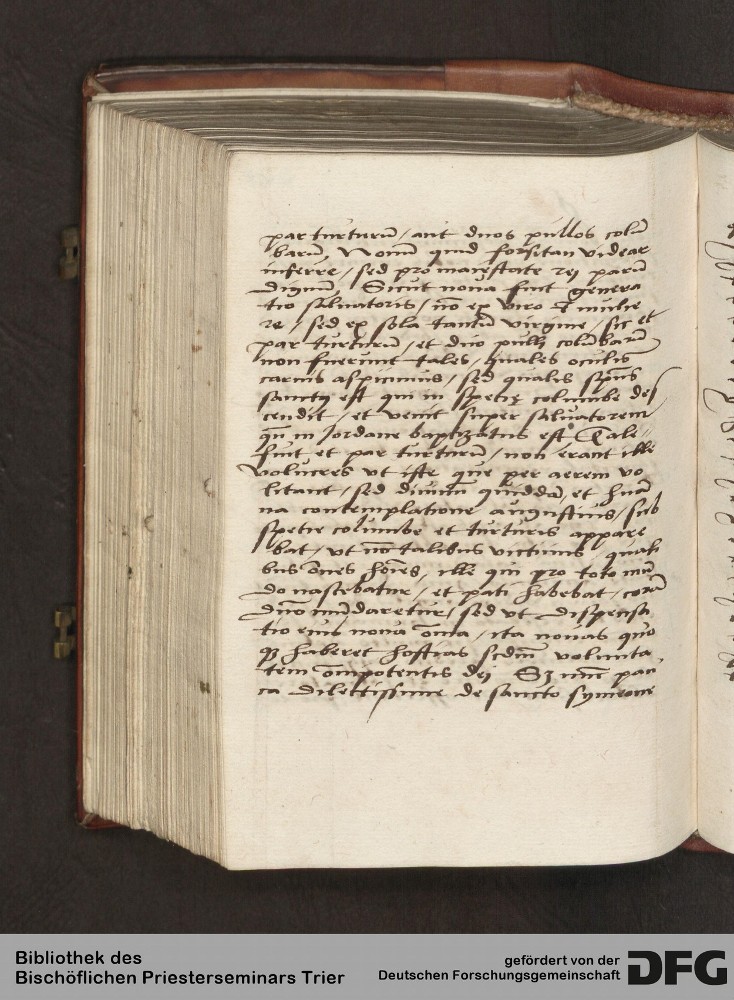 par turturū / aut duos pullos colū
barū, Nouū quid forsitan videar
inferre / sed pro maiestate rei parū
dignū, Sicut noua fuit genera
tio saluatoris / nō ex viro & mulie
re / sed ex sola tantū virgine / sic et
par turturū / et duo pulli colūbarū
non fuerunt tales / quales oculis
carnis aspicimus / sed qualis sp̄us
sanctus est qui in specie columbe des
cendit / et venit super saluatorem
qn̄ in Jordane baptizatus est. Tale
fuit et par turturū / non erant ille
volucres vt iste que per aerem vo
litant / sed diuinū quiddā, et humā
na contemplatione augustius / sub
specie columbe et turturis appare
bat / vt nō talibus victimis / quali
bus oēs hoīes, ille qui pro toto mū
do nascebatur / et pati habebat / corā
dn̄o mūdaretur / sed vt dispensa
tio eius noua oīa / ita nouas quo
qȝ haberet hostias scdm̄ volunta
tem oīpotentis dei Sȝ nūc pau
ca dilectissime de sancto symeone
Bibliothek des
Bischöflichen Priesterseminars Trier
gefördert von der
Deutschen Forschungsgemeinschaft
DFG